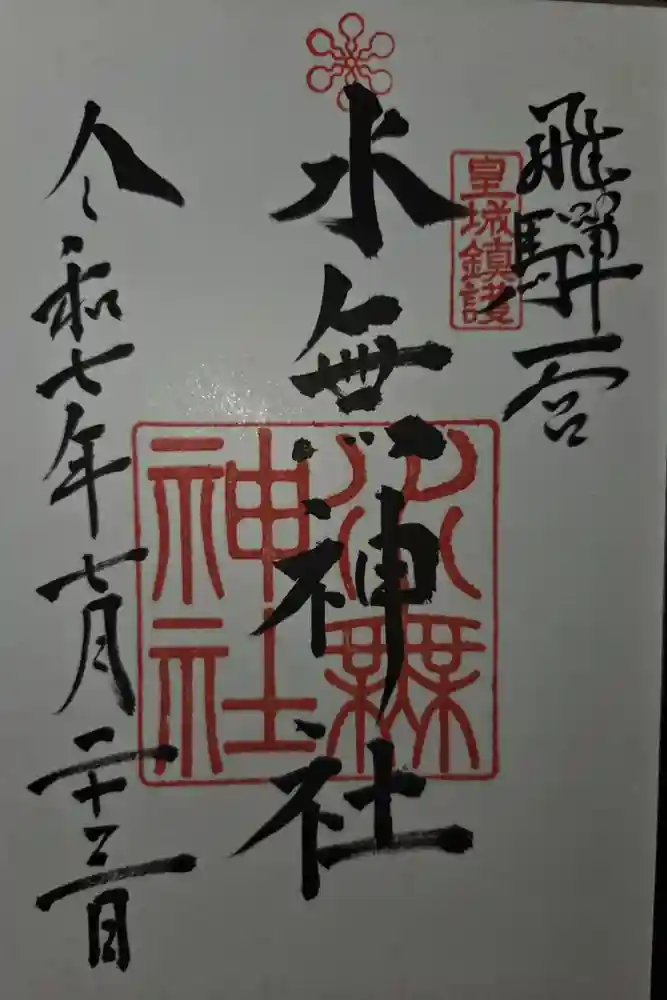 飛驒一宮
皇城鎮護
水無神社
水無
神社
令和七年七月二十三日